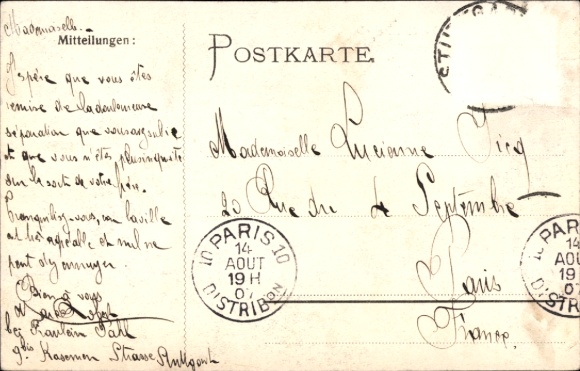 Mademoiselle.
Mitteilungen:
J'espère que vous êtes
remise de la douloureuse
séparation que vous
et que vous n'êtes plus inquiète
sur le sort de votre frère.
Tranquilisez-vous, car la ville
est très agréable et nul ne
peut s'y ennuyer.
Bien à vous
bei Fraulein
9 bis Kasernen Strasse Stuttgart
POSTKARTE.
Mademoiselle Lucienne
20 Rue du 4 Septembre
Paris
France.
STUTTGART
10 PARIS 10
14
AOUT
19 H
07
DISTRIBON
10 PARIS
14
AOUT
19 H
07
DISTRIB